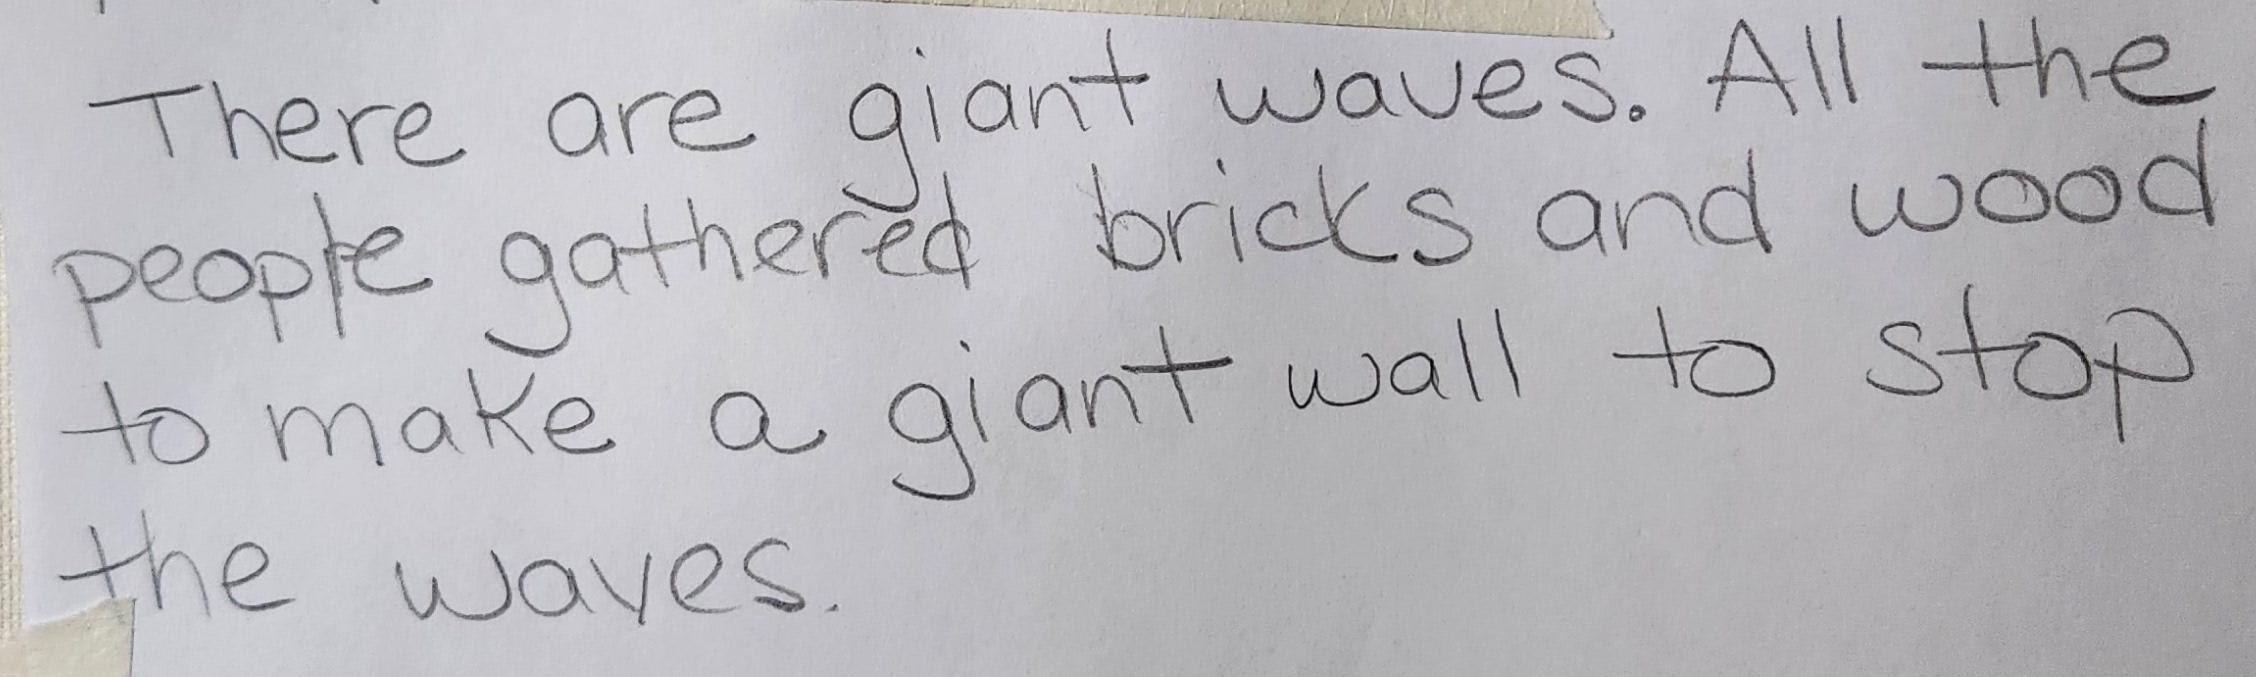 There are giant waves. All the
people gathered bricks and wood
to make a giant wall to stop
the waves.